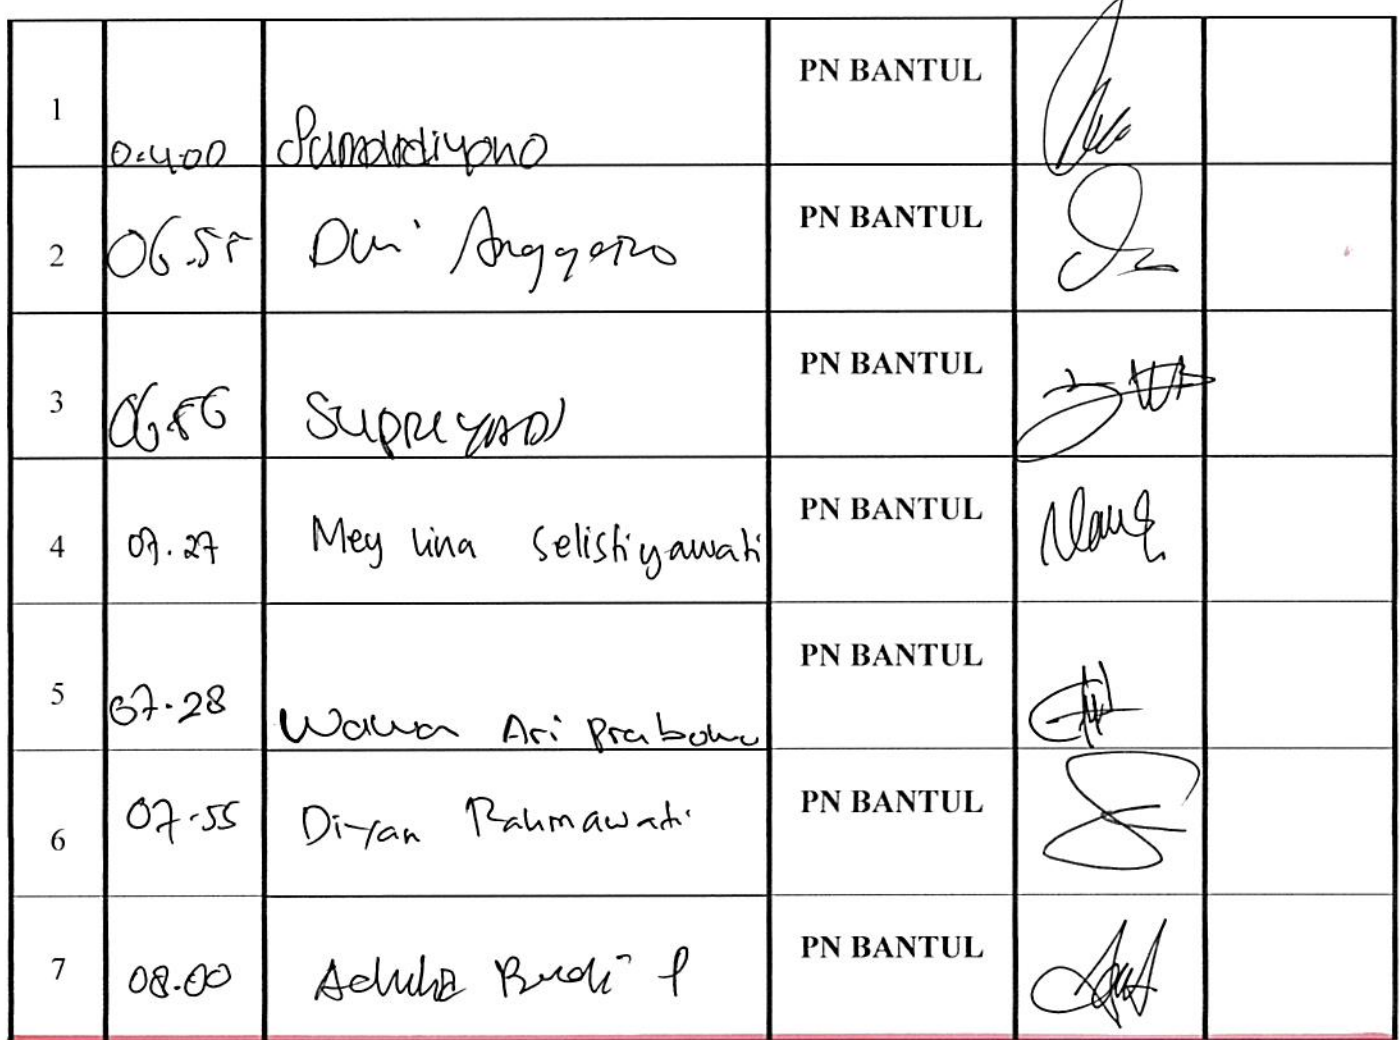 1 PN BANTUL
2 06.55 Dwi Anggoro PN BANTUL
3 06.56 SUPRIYADI PN BANTUL
4 07.27 Mey Lina Selistiyawati PN BANTUL
5 07.28 Wawan Ari Prabowo PN BANTUL
6 07.55 Diyan Rahmawati PN BANTUL
7 08.00 Budi P PN BANTUL